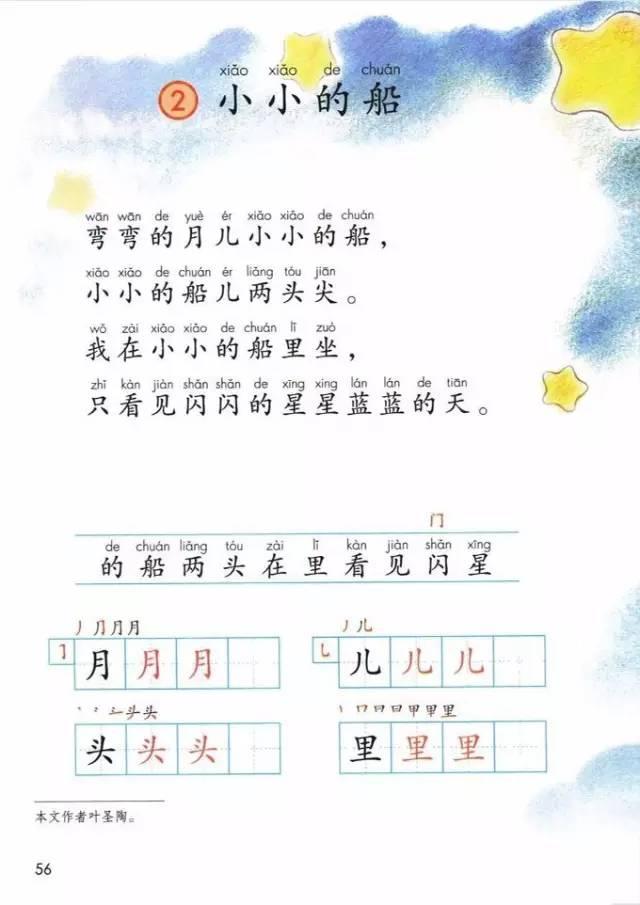 xiǎo xiǎo de chuán
2 小小的船
wān wān de yuè ér xiǎo xiǎo de chuán
弯弯的月儿小小的船，
xiǎo xiǎo de chuán ér liǎng tóu jiān
小小的船儿两头尖。
wǒ zài xiǎo xiǎo de chuán lǐ zuò
我在小小的船里坐，
zhǐ kàn jiàn shǎn shǎn de xīng xing lán lán de tiān
只看见闪闪的星星蓝蓝的天。
门
de chuán liǎng tóu zài lǐ kàn jiàn shǎn xīng
的船两头在里看见闪星
丿 ⺆ 月 月
月 月 月
丿 儿
乚 儿 儿 儿
头 头
头 头 头
丨 口 日 日 甲 甲 里
里 里 里
本文作者叶圣陶。
56